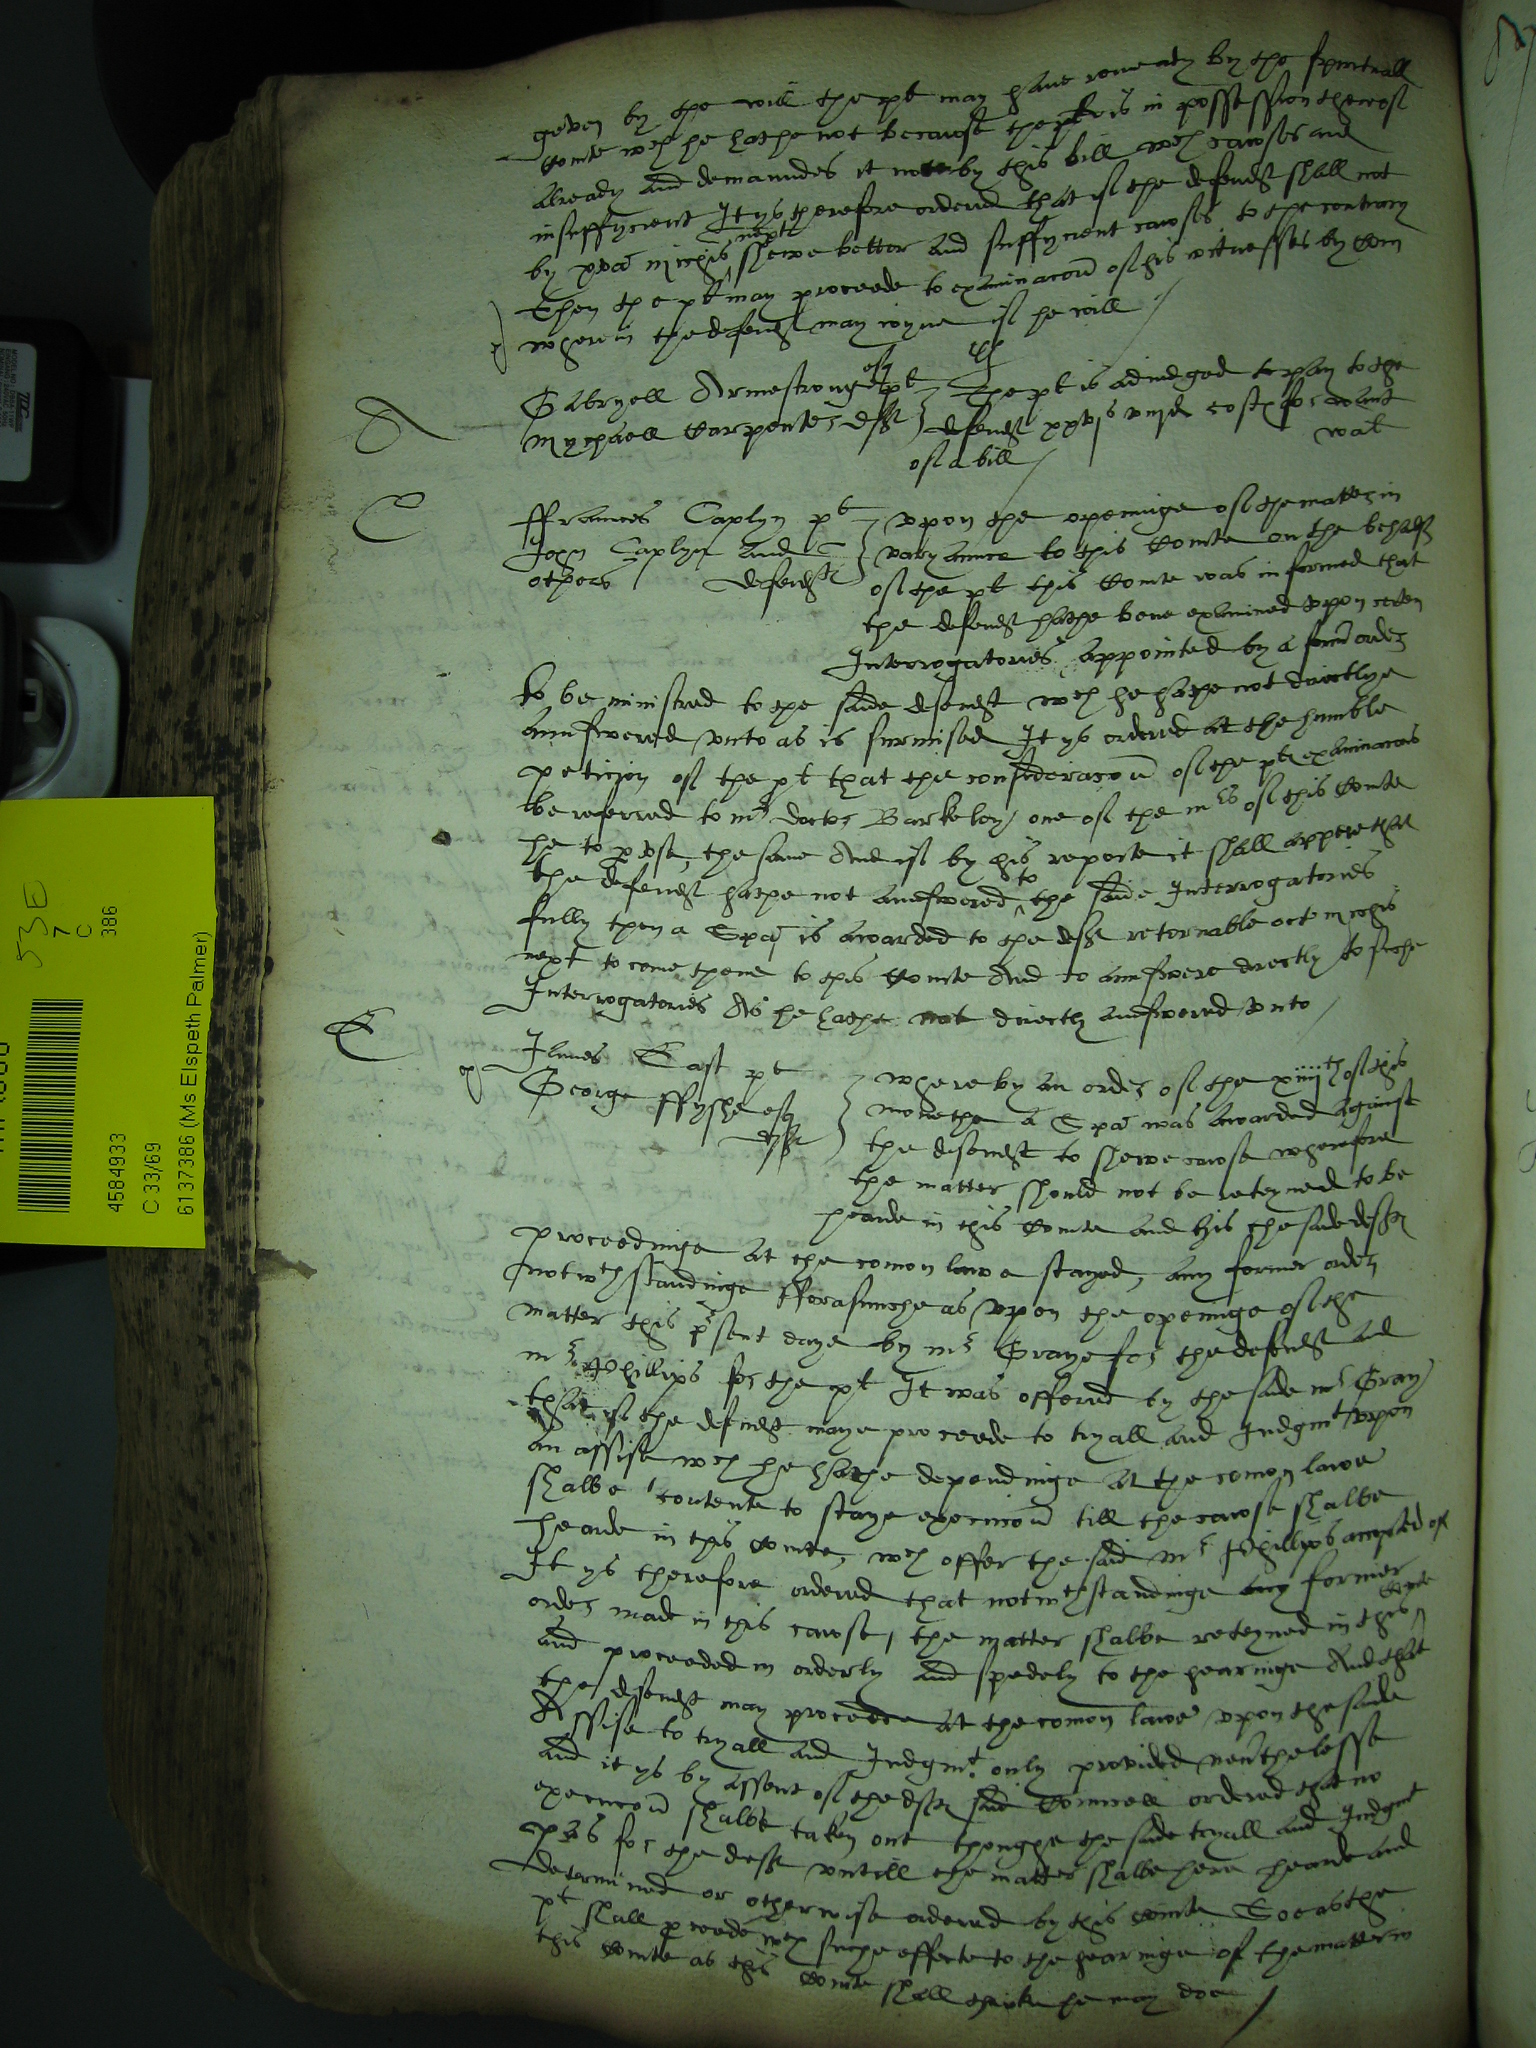 geven by the will the plt may have remedy by the spirituall
Courte wch he hathe not because the plt is in possession therof
already and demaundes it not by this bill wch causes are
insuffycient It ys therefore ordered that if the defendt shall not
by michis next shewe better and suffycient causes to the contrary
Then the plt may proceede to examinacon of his witnesses by Com
wherin the defendt may ioyne if he will /
A
Gabryell Armestronge esq plt
Mychaell Carpenter deft
The plt is adiudged to pay to the
defendt xxvjs viijd costes for want
of a bill /
C
ffraunces Caplyn plt
John Caplyn and
others defendtes
vpon the openinge of the matter in
varyaunce to this Courte on the behalf
of the plt this Courte was informed that
the defendt hathe bene examined vpon certen
Interrogatories appointed by a former order
to be ministred to the saide defendt wch he hathe not directlye
aunswered vnto as is surmised It ys ordered at the humble
peticion of the plt that the consideracon of the examinacons
be referred to mr doctor Barkeley one of the mrs of this Courte
he to pvse the same And if by his reporte it shall appere that
the defendt hathe not aunswered to the saide Interrogatories
fully then a Spa is awarded to the deft retornable octo michis
next to come theme to this Courte And to aunswere directly to suche
Interrogatories As he hathe not directly aunswered vnto /
E
James East plt
George ffyshe esq
deft
where by an order of the xiiijth of this
monethe a Spa was awarded against
the defendt to shewe cause wherefore
the matter should not be reteyned to be
hearde in this Courte and his the saide deftes
proceedinge at the comon lawe stayed, any former order
notwthstandinge fforasmuche as vpon the openinge of the
matter this psent daye by mr Graye for the defendt and
mr Phillips for the plt It was offered by the saide mr Gray
that if the defendt maye proceede to tryall and Judgmt vpon
an assise wch he hathe dependinge at the comon lawe
shalbe contente to staye execucon till the cause shalbe
hearde in this Courte, wch offer the said mr Phillips accepted of
It ys therefore ordered that notwthstandinge any former
order made in this cause, the matter shalbe reteyned in this Courte
and proceeded in orderly and spedely to the hearinge And that
the defendt may proceede at the comon lawe vpon the saide
Assise to tryall and Judgmt only provided neuthelesse
and it ys by assent of the deftes saide Councell ordered that no
execucon shalbe taken out thoughe the saide tryall and Judgmt
pas for the deft vntill the matter shalbe here hearde and
determined or otherwise ordered by this Courte So as the
plt shall pceede wth suche effecte to the hearinge of the matter in
this Courte as this Courte shall thinke he may doe /
53E
7
C
386
4584933
C 33/69
6137386 (Ms Elspeth Palmer)